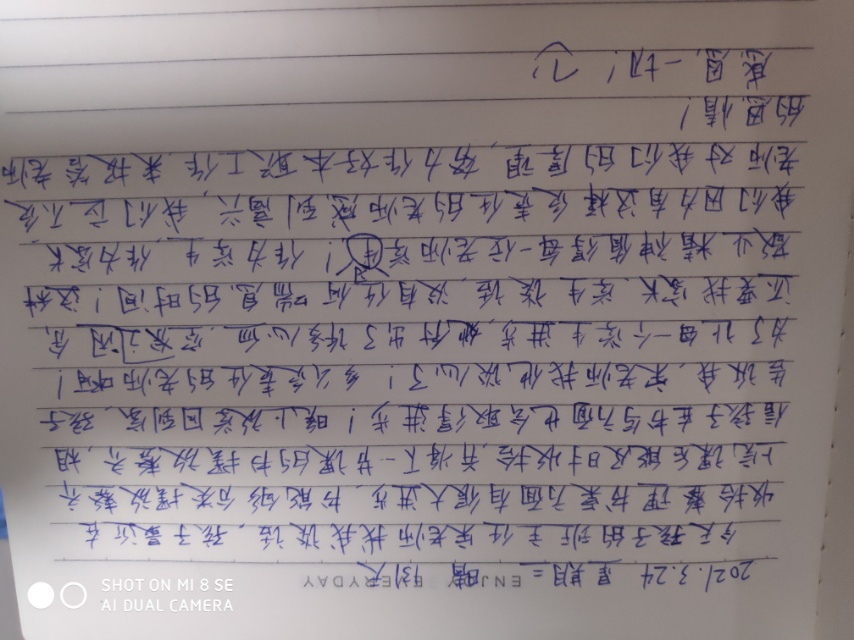 ENJOY EVERYDAY
2021.3.24 星期三 晴 431天
今天孩子的班主任宋老师找我谈话，孩子最近在
收拾整理书桌方面有很大进步，书能够分类摆放整齐
上完课后能及时收拾，并将下一节课的书摆放整齐，相
信孩子在书写方面也会取得进步！晚上放学回到家，孩子
告诉我，宋老师找他谈心了！多么负责任的老师啊！
为了让每一个学生进步，她付出了许多心血，
还要找家长、学生谈话，没有任何喘息的时间！这种
敬业精神值得每一位老师学习！作为学生，作为家长
我们因为有这样负责任的老师感到高兴，我们应不负
老师对我们的厚望，努力作好本职工作，来报答老师
的恩情！
感恩一切！
SHOT ON MI 8 SE
AI DUAL CAMERA